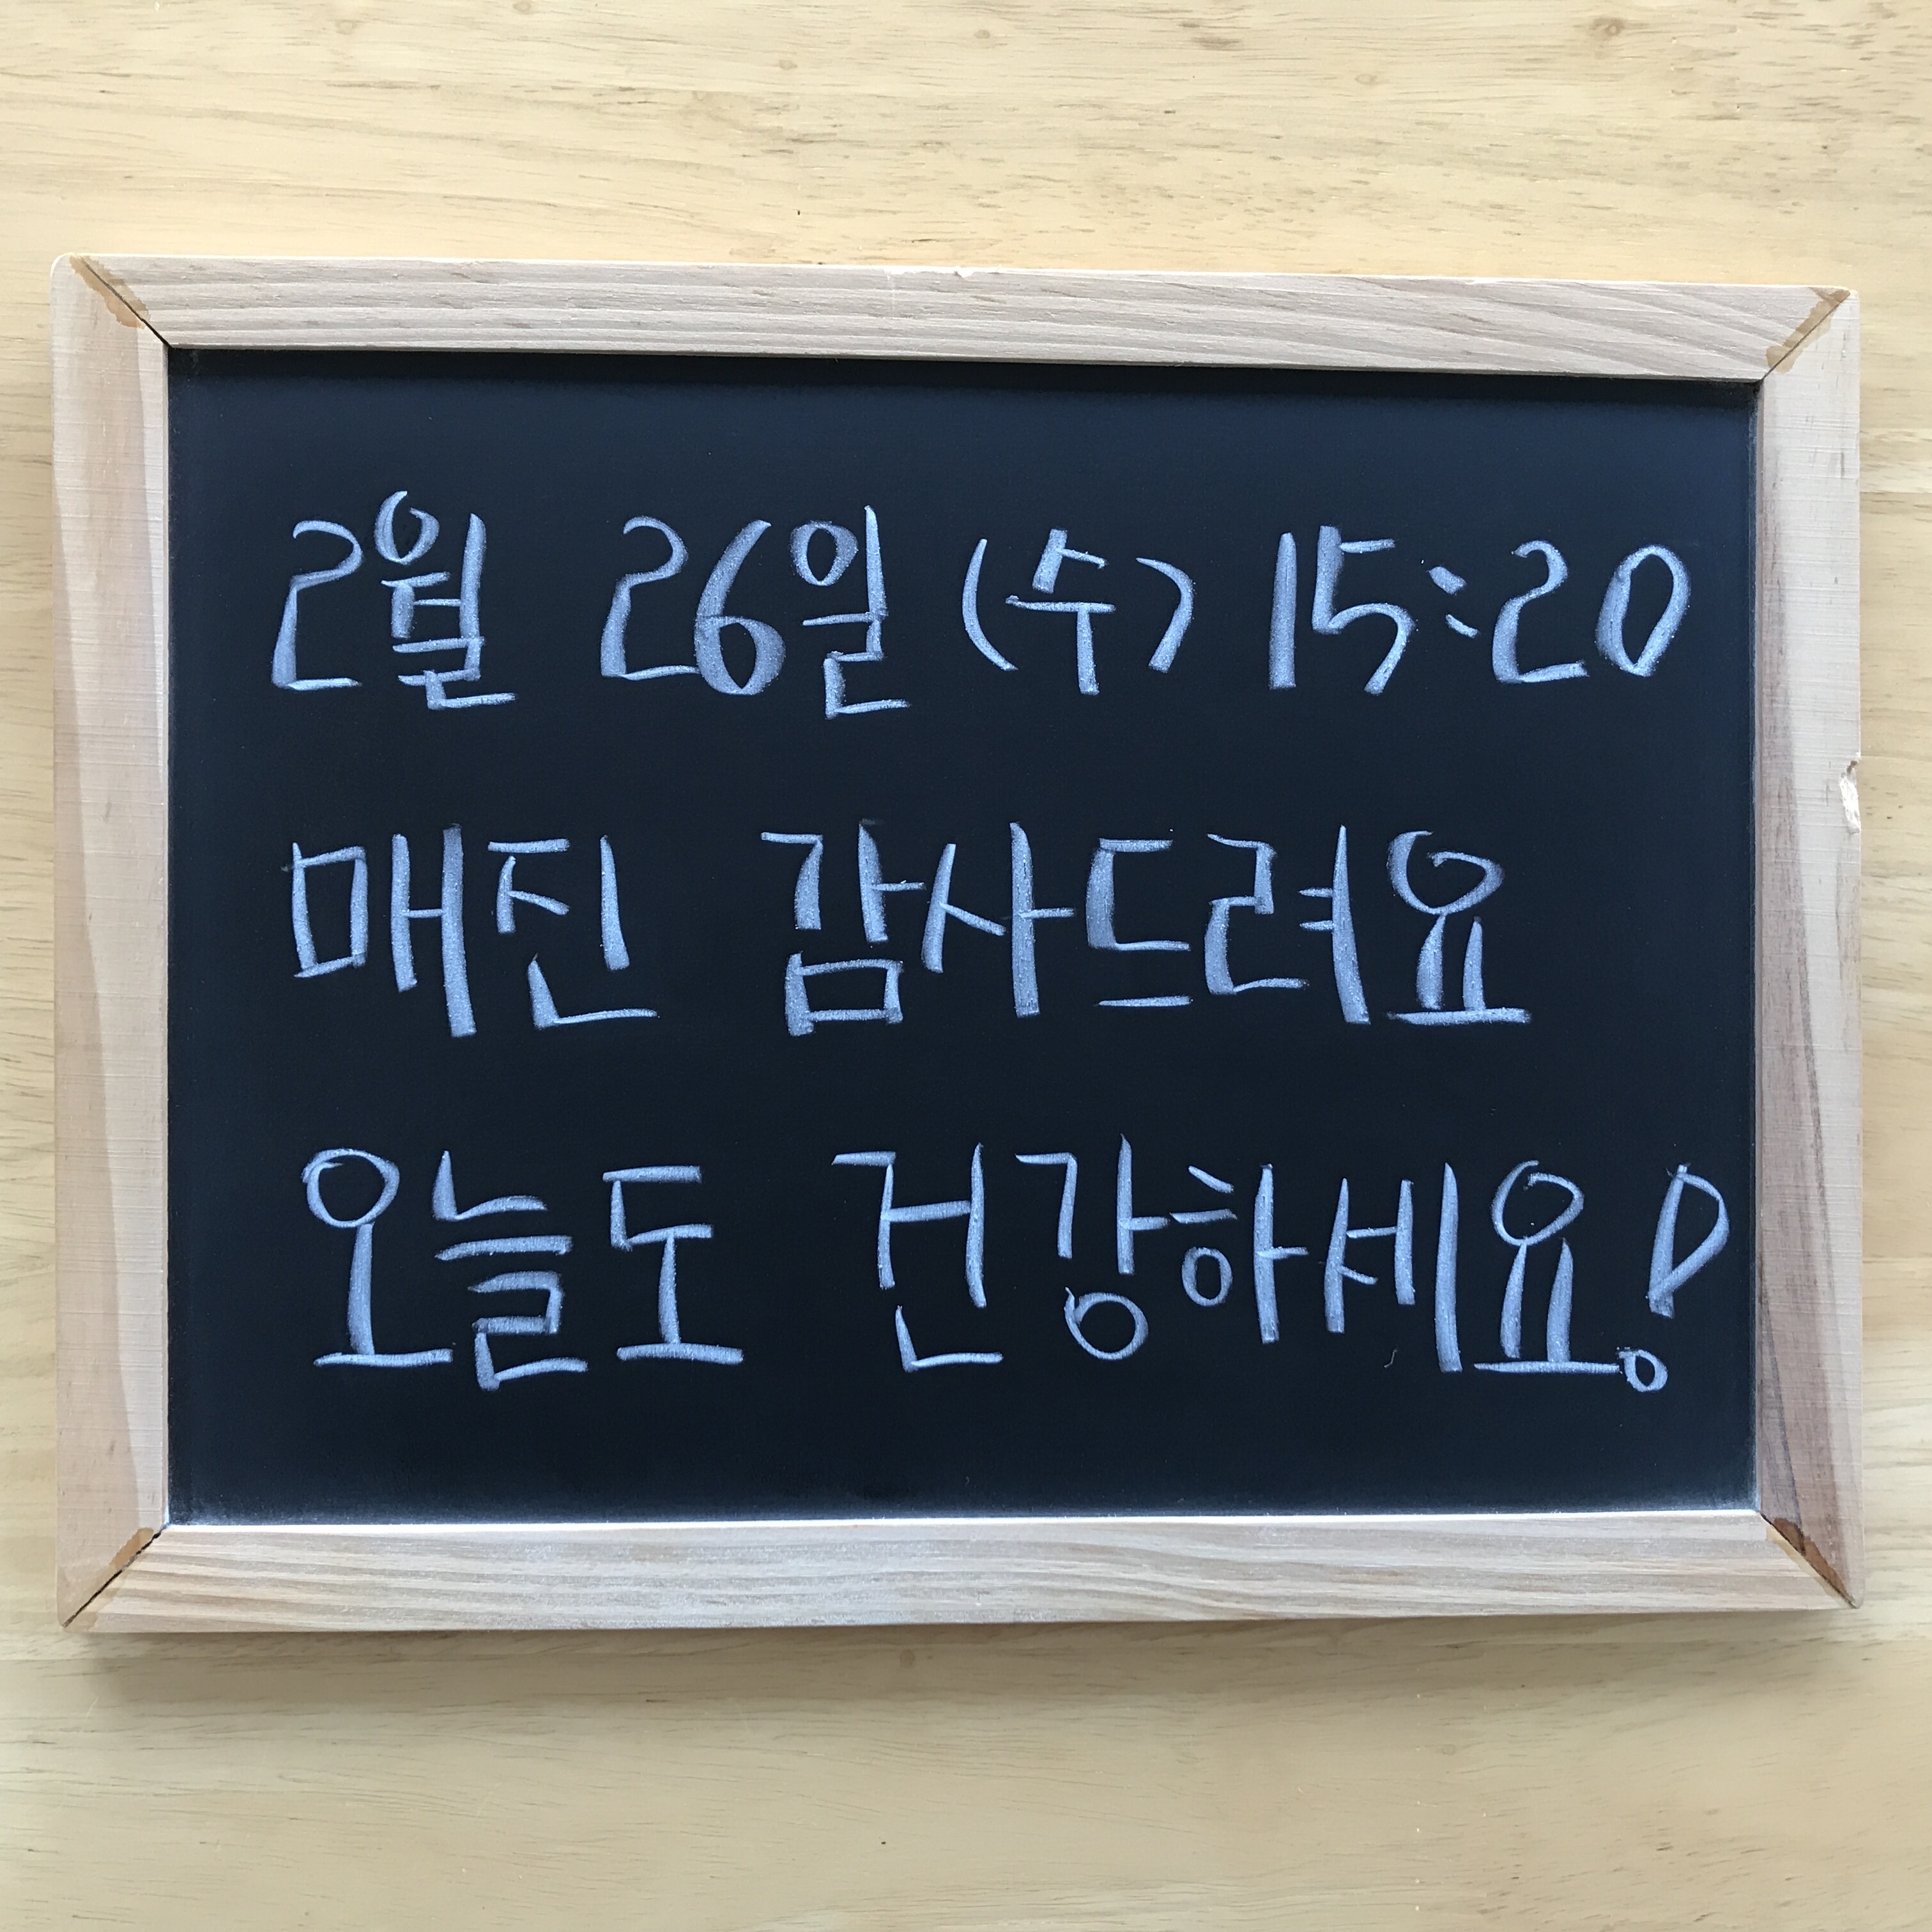 2월 26일 (수) 15:20
매진 감사드려요
오늘도 건강하세요!